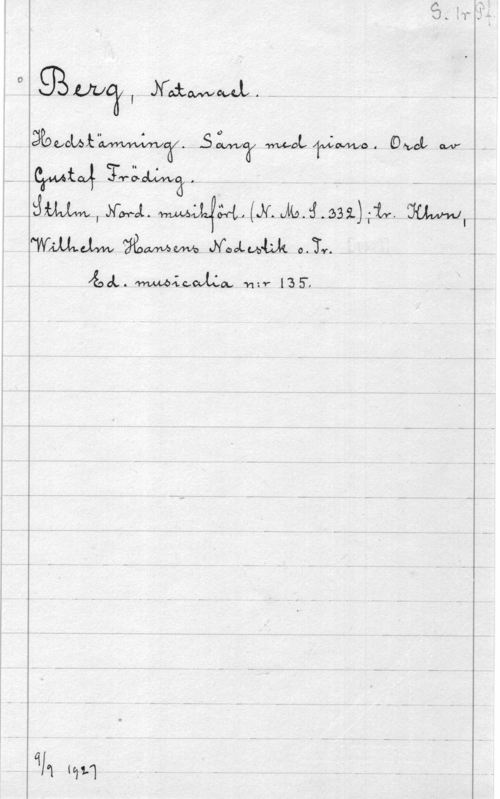 S. 1r Pf
Berg, Natanael.
Hedstämning. Sång med piano. Ord av
Gustaf Fröding.
Sthlm, Nord. musikförl. (N. M. S. 332); tr. Khvn,
Wilhelm Hansens Nodestik o. Tr.
Ed. musicalia n:r 135.
9/9 1927